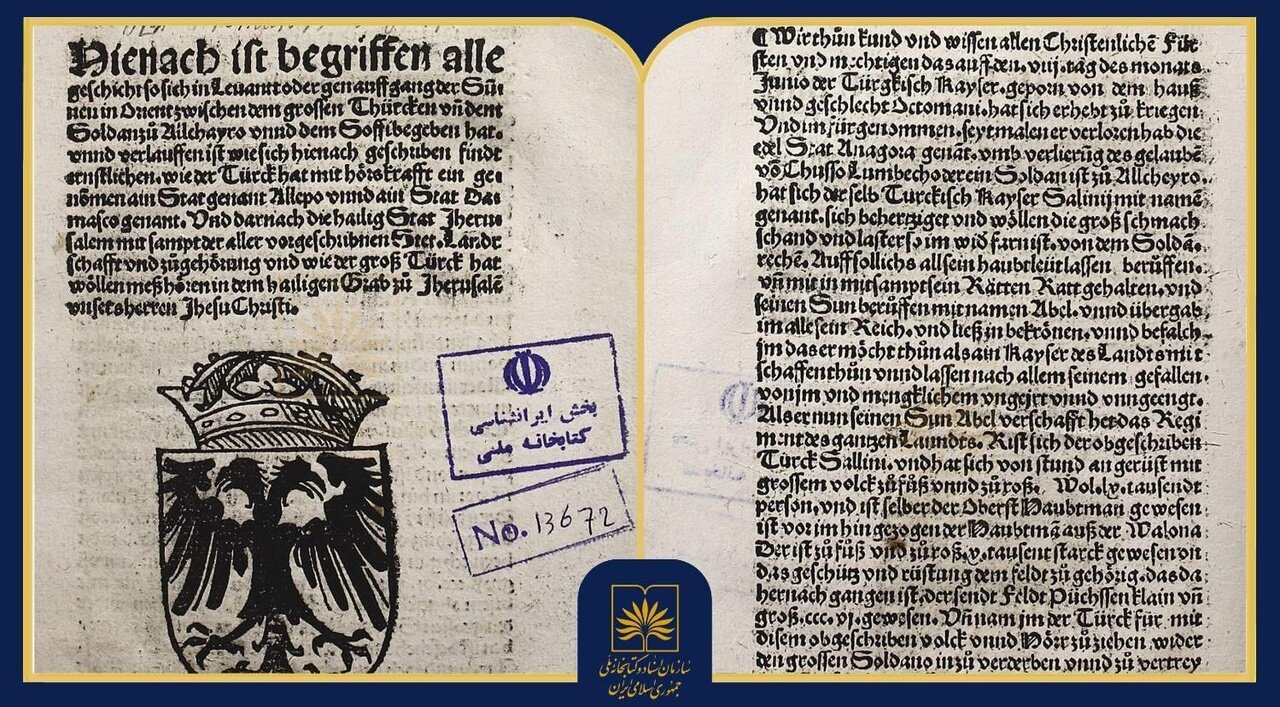 Hienach ist begriffen alle
geschicht so sich in Leuantt oder gen auffgang der Sũ
nen in Orient zwischen dem grossen Thürcken vñ dem
Soldan zů Ailchayro vnnd dem Soffi begeben hat.
vnnd verlauffen ist wie sich hienach geschriben findt
ernstlichen. wie der Türck hat mit hörskrafft ein ge
nõmen ain Stat genant Allepo vnnd ain Stat Da
masco genant. Vnd darnach die hailig Stat Jheru
salem mit sampt der aller vorgeschribnen Stet. Landt
schafft vnd zůgehörung vnd wie der groß Türck hat
wöllen meß hören in dem hailigen Grab zů Jherusalẽ
vnsers herren Jhesu Christi.
بخش ایرانشناسی
کتابخانه ملی
No. 13672
¶ Wir thůn kund vnd wissen allen Christenlichẽ Für
sten vnd mechtigen das auff den. viij. tag des monats
Junio der Türgkisch Kayser. geporn von dem hauß
vnnd geschlecht Octomani. hat sich erhebt zů kriegen
Vnd im fürgenommen. seytmalen er verloren hab die
edel Stat Anagora genãt. vmb verlierũg des gelaubẽ
võ Chusso Lumbecho der ein Soldan ist zů Allcheyro.
hat sich der selb Türckisch Kayser Salinij mit namẽ
genant. sich behertziget vnd wöllen die groß schmach
schand vnd laster so im wid farn ist. von dem Soldã.
rechẽ. Auff sollichs all sein haubtleüt lassen berüffen.
vñ mit in mit sampt sein Rätten Ratt gehalten. vnd
seinen Sun berüffen mit namen Abel. vnnd übergab
im alle sein Reich. vnd ließ in bekrönen. vnnd befalch
jm das er möcht thůn als ain Kayser des Landts mit
schaffen thůn vnnd lassen nach allem seinem gefallen.
von jm vnd mengklichem vngejrt vnnd vngeengt.
Als er nun seinen Sun Abel verschafft het das Regi
ment des gantzen Lanndts. Rist sich der obgeschriben
Türck Sallini. vnd hat sich von stund an gerüst mit
grossem volck zů fůß vnnd zů roß. Wol. ly. tausendt
person. vnd ist selber der Oberst Haubtman gewesen
ist vor im hin gezogen der Haubtmã auß der Walona
Der ist zů fůß vnd zů roß. v. tausent starck gewesen on
das geschütz vnd rüstung dem feldt zů gehörig. das da
hernach gangen ist. der sendt Feldt Püchssen klain vñ
groß. ccc. vj. gewesen. Vñ nam jm der Türck für mit
disem obgeschriben volck vnnd Hörr zů ziehen. wider
den grossen Soldano in zů verderben vnnd zů vertrey
سازمان اسناد و کتابخانه ملی
جمهوری اسلامی ایران